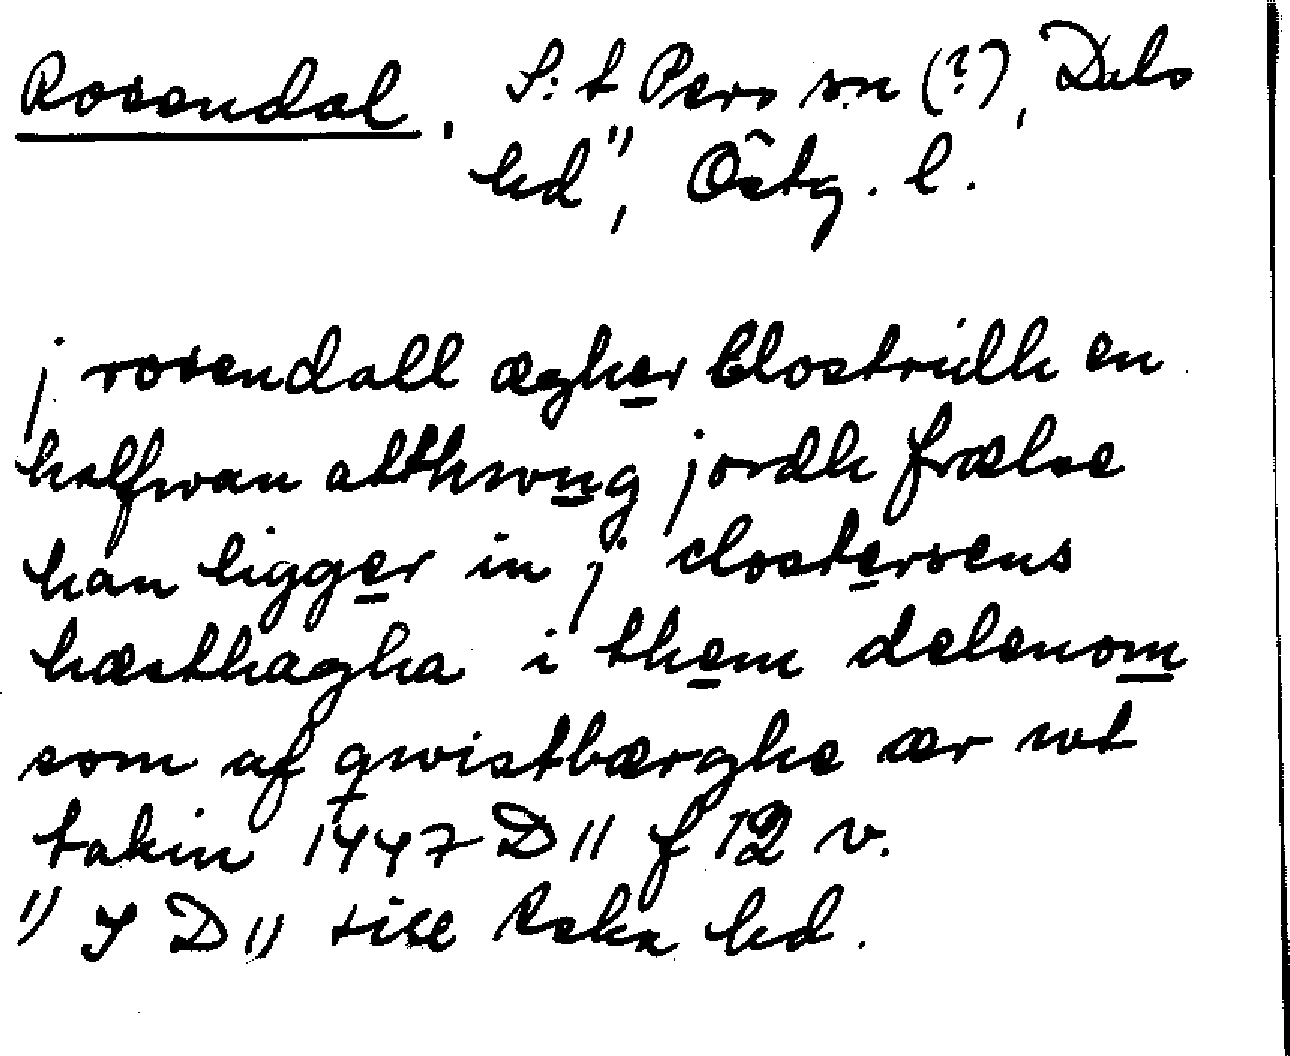 Rosendal. S:t Pers sn (?), Dals
hd¹⁾, Östg. l.
j rosendall ægher Clostridh en
halfwan atthwng jordh frælse
han ligger in j clostersens
hæsthagha i them delenom
som af qwistbærghe ær wt
takin 1447 D 11 f 12 v.
1) I D 11 till Aska hd.